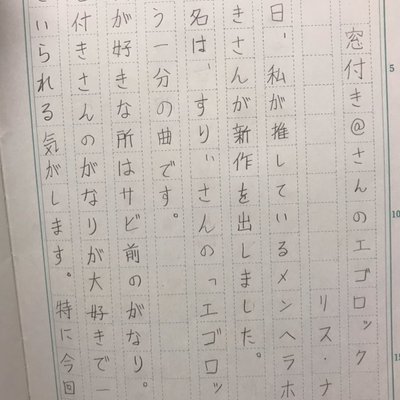 窓付き@さんのエゴロック
リス・ナ
日、私が推しているメンヘラホ
きさんが新作を出しました。
名は、すりぃさんの「エゴロッ
う一分の曲です。
が好きな所はサビ前のがなり。
付きさんのがなりが大好きで一
いられる気がします。特に今回
5
10
15